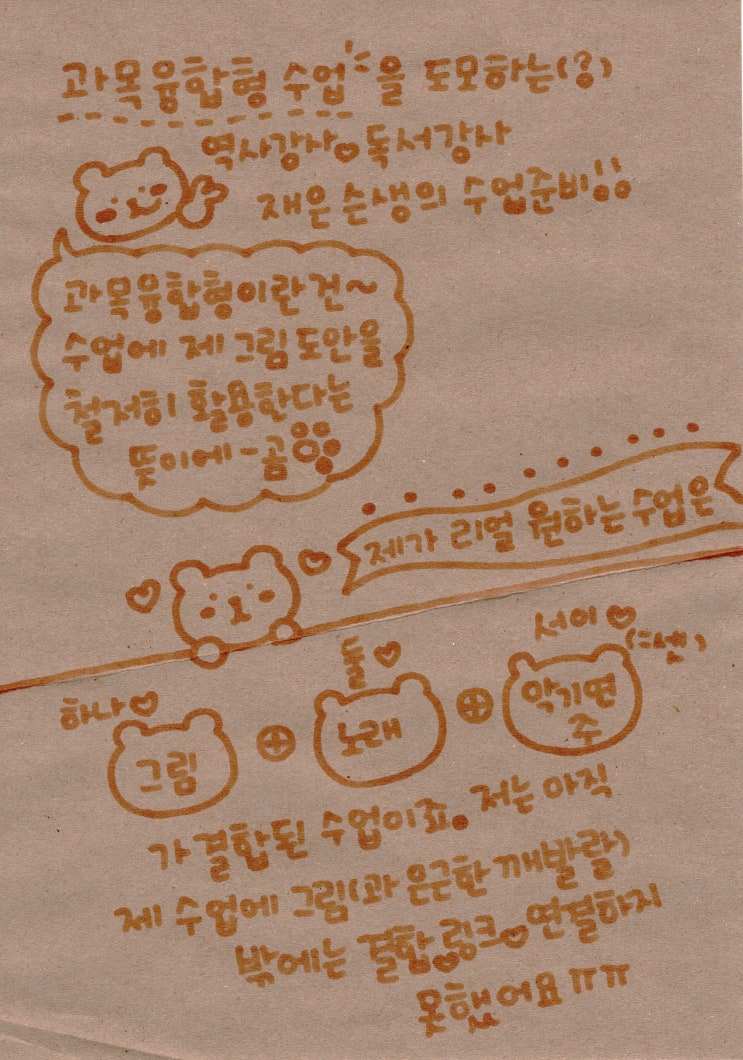 과목융합형 수업을 도모하는(?)
역사강사♡독서강사
재은슨생의 수업준비!!
과목융합형이란건~
수업에 제 그림도안을
철저히 활용한다는
뜻이에-곰
제가 리얼 원하는 수업은
하나♡
둘♡
서이♡
(=셋)
그림 ⊕ 노래 ⊕ 악기연주
가 결합된 수업이죠. 저는 아직
제 수업에 그림(과 은근한 깨발랄)
밖에는 결합♡링크♡연결하지
못했어요ㅠㅠ